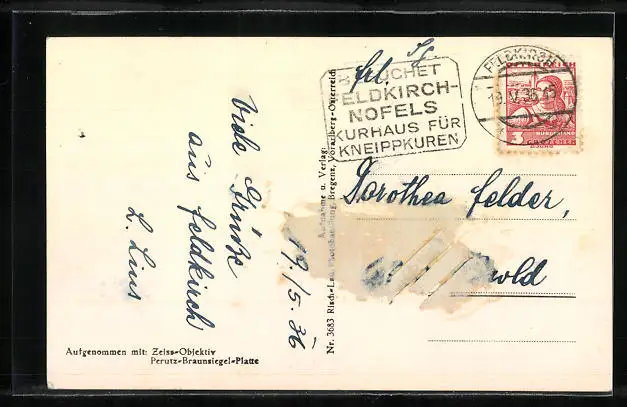 Viele Grüße
aus Feldkirch
L. Lins
19./5. 36
Aufgenommen mit: Zeiss-Objektiv
Perutz-Braunsiegel-Platte
Nr. 3683 Risch-Lau, Photohandlung, Bregenz, Vorarlberg-Österreich
Aufnahme u. Verlag:
BESUCHET
FELDKIRCH-
NOFELS
KURHAUS FÜR
KNEIPPKUREN
FELDKIRCH
19.V.36.15
ÖSTERREICH
BURGENLAND
3 GROSCHEN
Frl.
Dorothea Felder,